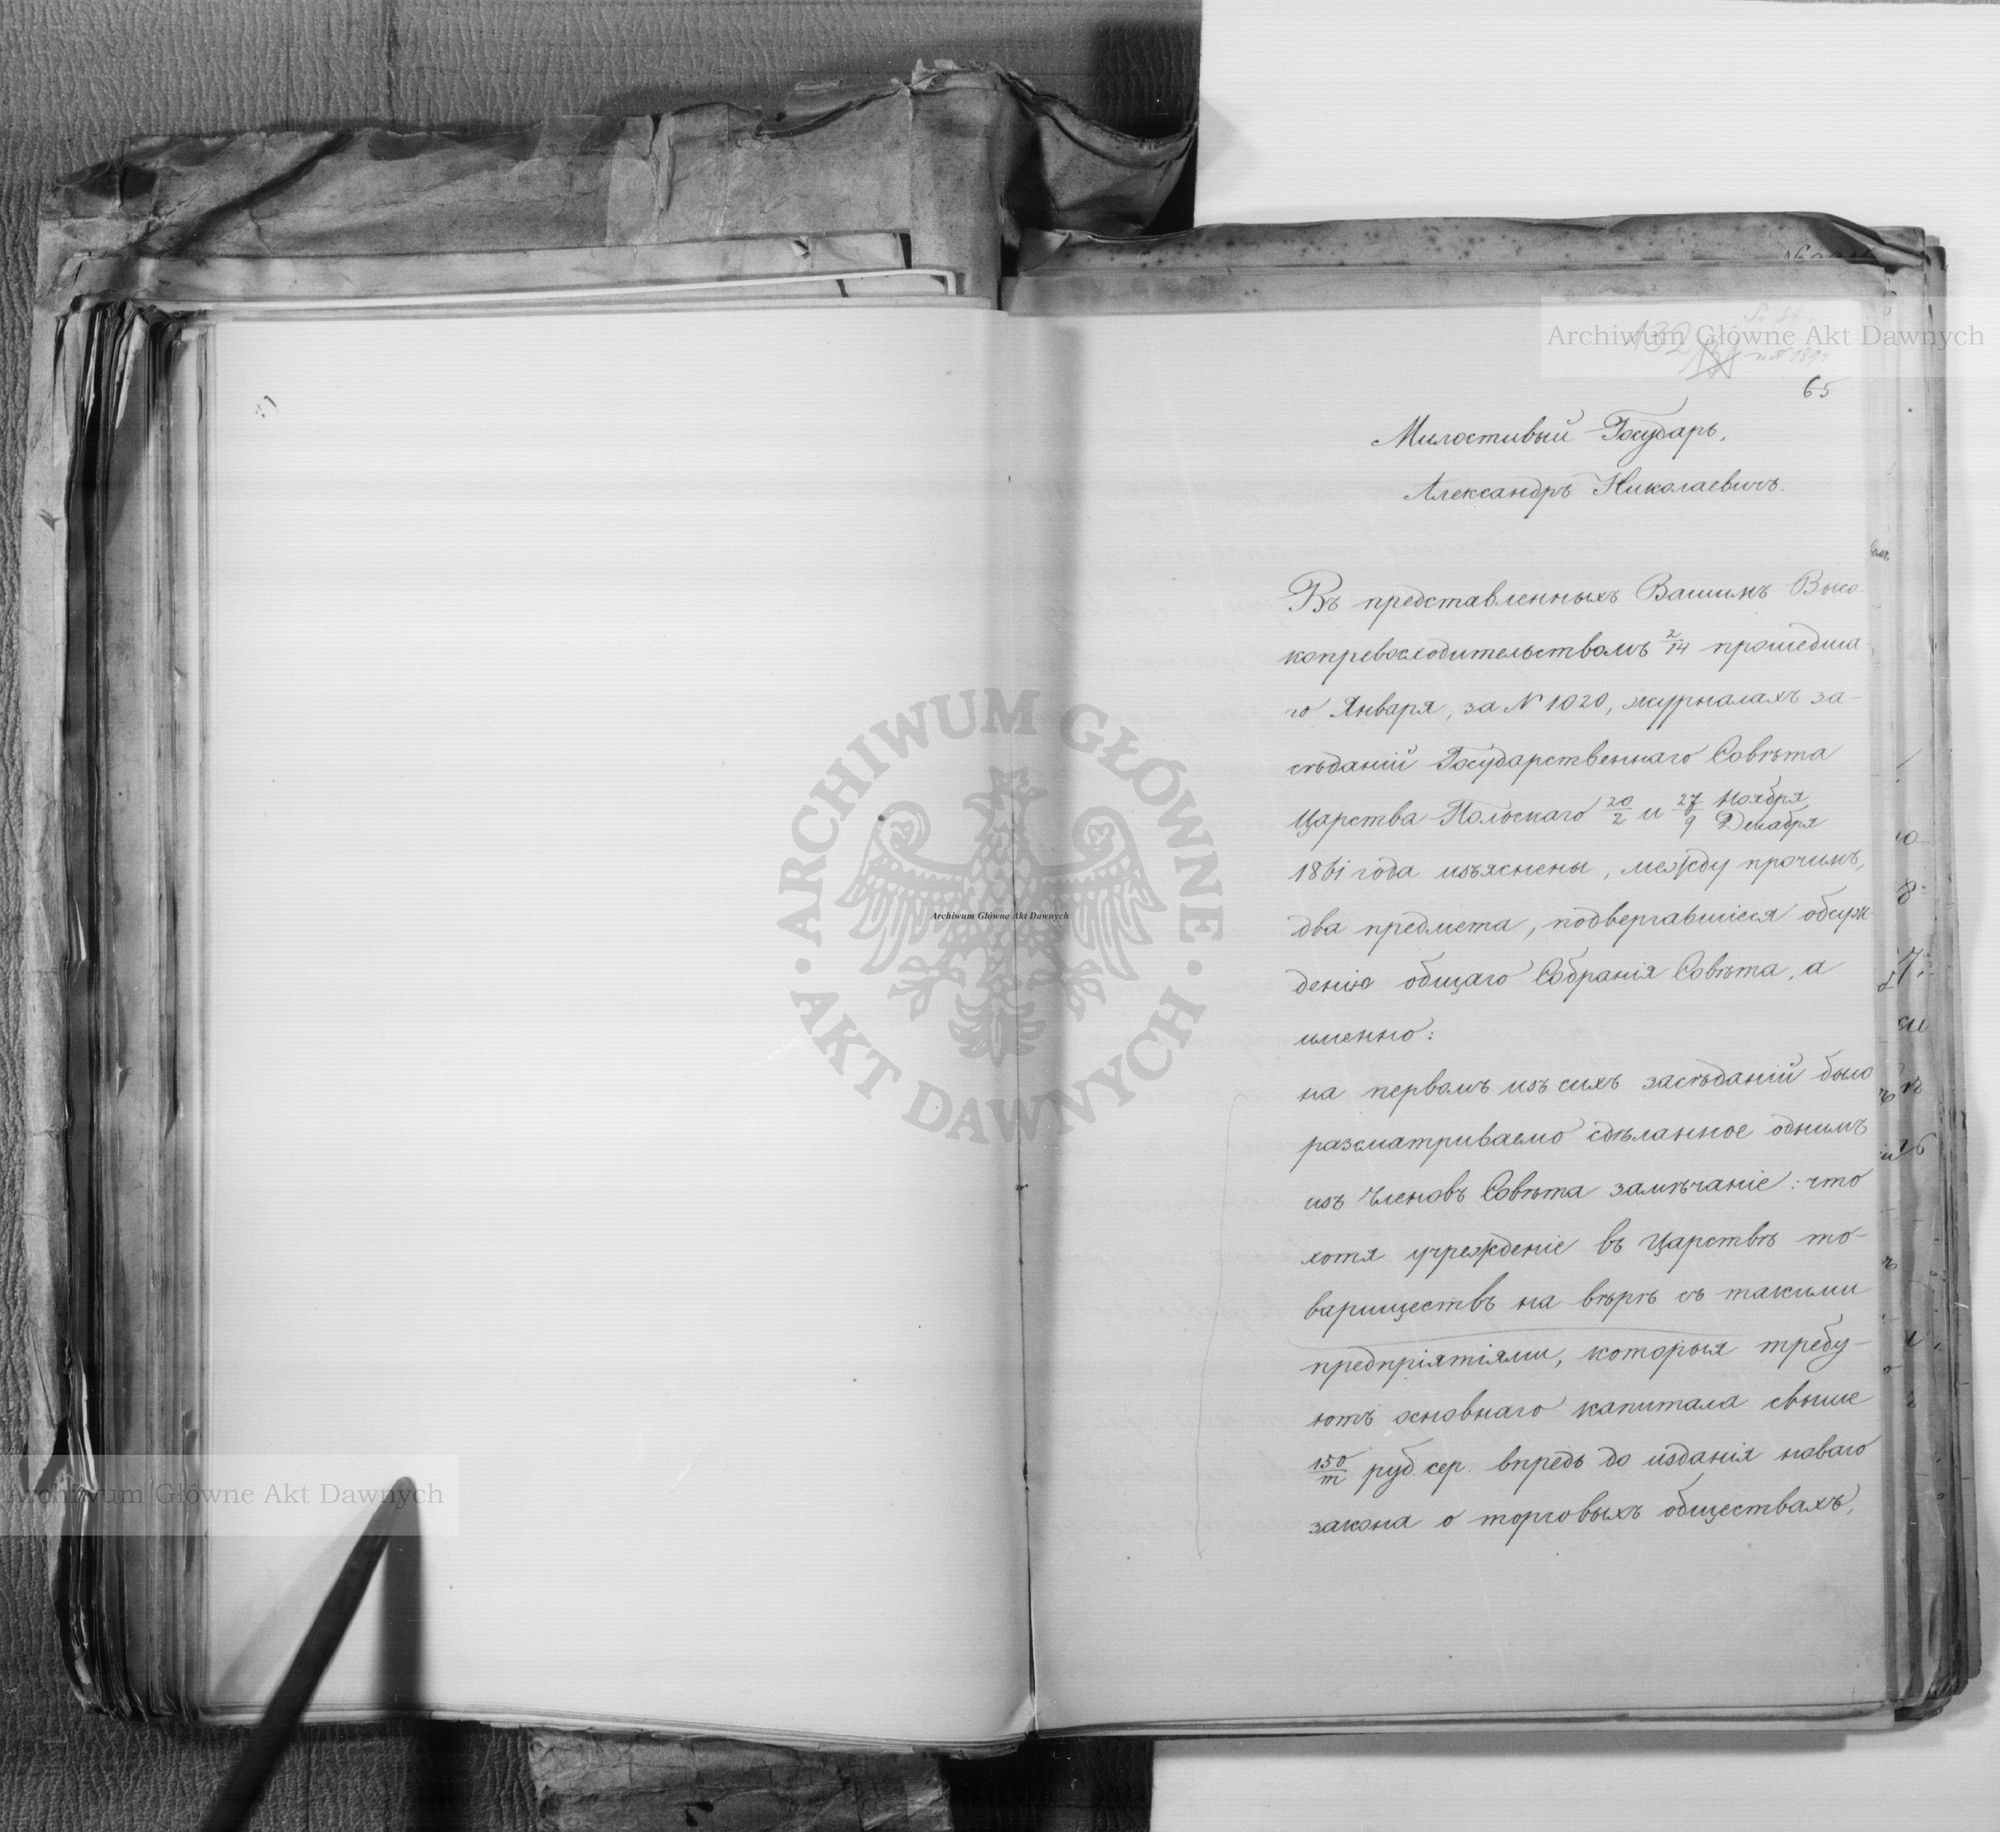 132
65
Милостивый Государь,
Александръ Николаевичъ.
Въ представленныхъ Вашимъ Высо-
копревосходительствомъ 2/14 прошедша
го Января, за N 1020, журналахъ за-
сѣданій Государственнаго Совѣта
Царства Польскаго 20/2 и 27/9 Ноября/Декабря
1861 года изъяснены, между прочимъ,
два предмета, подвергавшіеся обсуж-
денію общаго Собранія Совѣта, а
именно:
на первомъ изъ сихъ засѣданій было
разсматриваемо сдѣланное однимъ
изъ Членовъ Совѣта замѣчаніе: что
хотя учрежденіе въ Царствѣ то-
вариществъ на вѣрѣ съ такими
предпріятіями, которыя требу-
ютъ основнаго капитала свыше
150/m руб. сер. впредь до изданія новаго
закона о торговыхъ обществахъ,
Archiwum Główne Akt Dawnych
Archiwum Główne Akt Dawnych
Archiwum Główne Akt Dawnych
ARCHIWUM GŁÓWNE
AKT DAWNYCH